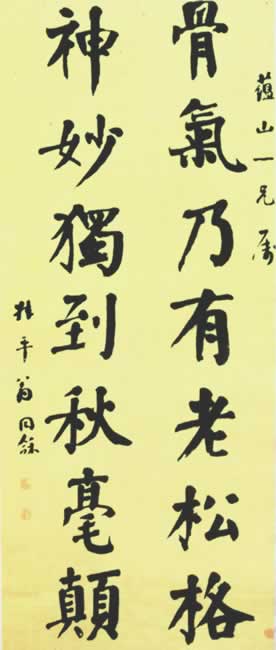 蘊山一兄屬
骨氣乃有老松格
神妙獨到秋毫顛
叔平翁同龢